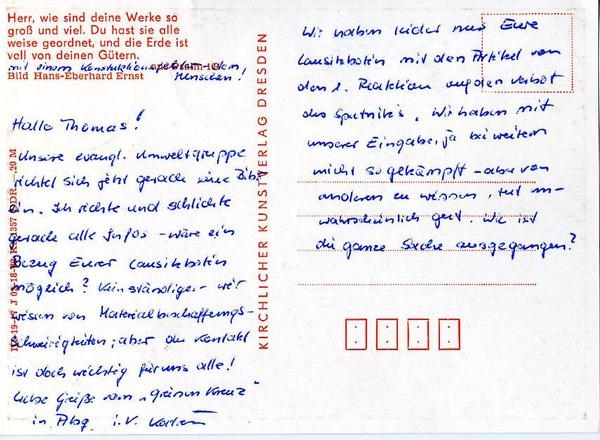 Herr, wie sind deine Werke so
groß und viel. Du hast sie alle
weise geordnet, und die Erde ist
voll von deinen Gütern.
mit einem Konstruktionsproblem – dem
Menschen!
Bild Hans-Eberhard Ernst
Hallo Thomas!
Unsere evangl. Umweltgruppe
richtet sich jetzt gerade eine Bib.
ein. Ich richte und schlichte
gerade alle Infos – wäre ein
Bezug Eurer Lausitzbotin
möglich? Kein ständiger – wir
wissen von Materialbeschaffungs-
schwierigkeiten; aber der Kontakt
ist doch wichtig für uns alle!
Liebe Grüße vom "grünen Kreuz"
in Abg. i.V.
KIRCHLICHER KUNSTVERLAG DRESDEN
Wir haben leider nur Eure
Lausitzbotin mit den Artikel von
den 1. Reaktion auf den Verbot
des Sputniks, wir haben mit
unserer Eingabe, ja bei weitem
nicht so gekämpft – aber von
anderen zu wissen, tut un-
wahrscheinlich gut. Wie ist
die ganze Sache ausgegangen?